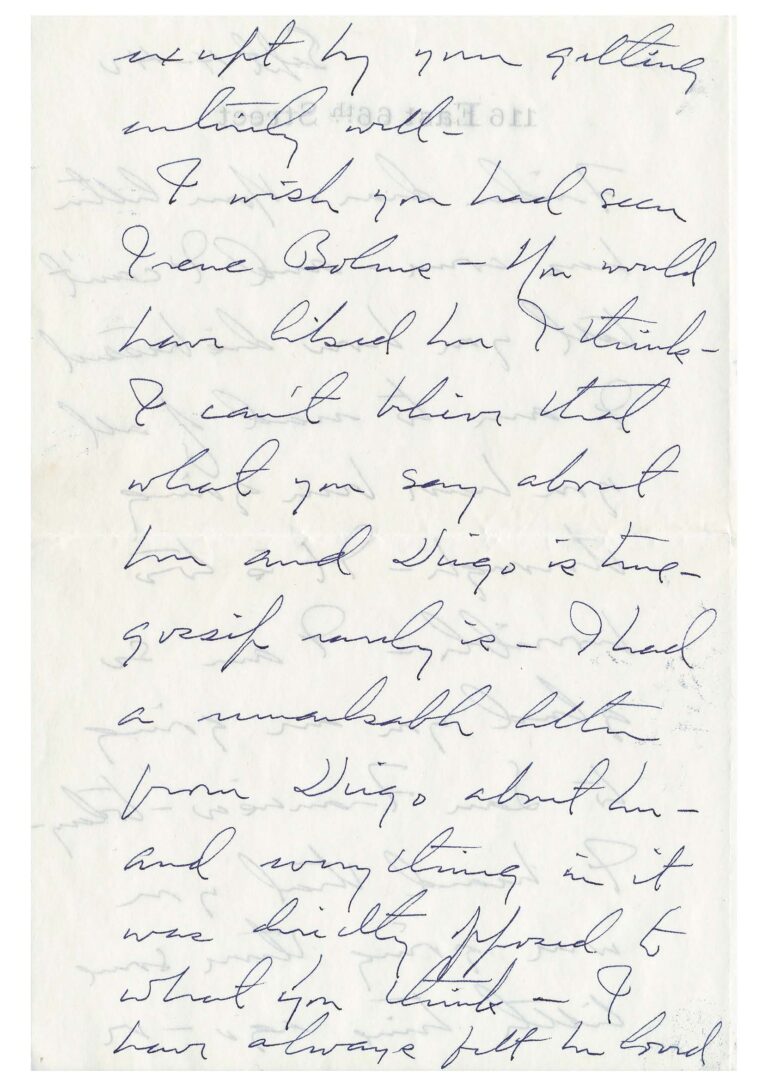 except by your getting
entirely well –
I wish you had seen
Irene Bohus – You would
have liked her I think –
I can't believe that
what you say about
her and Diego is true –
gossip rarely is – I had
a remarkable letter
from Diego about her –
and everything in it
was directly opposed to
what you think – I
have always felt he loved
116 East 66th Street